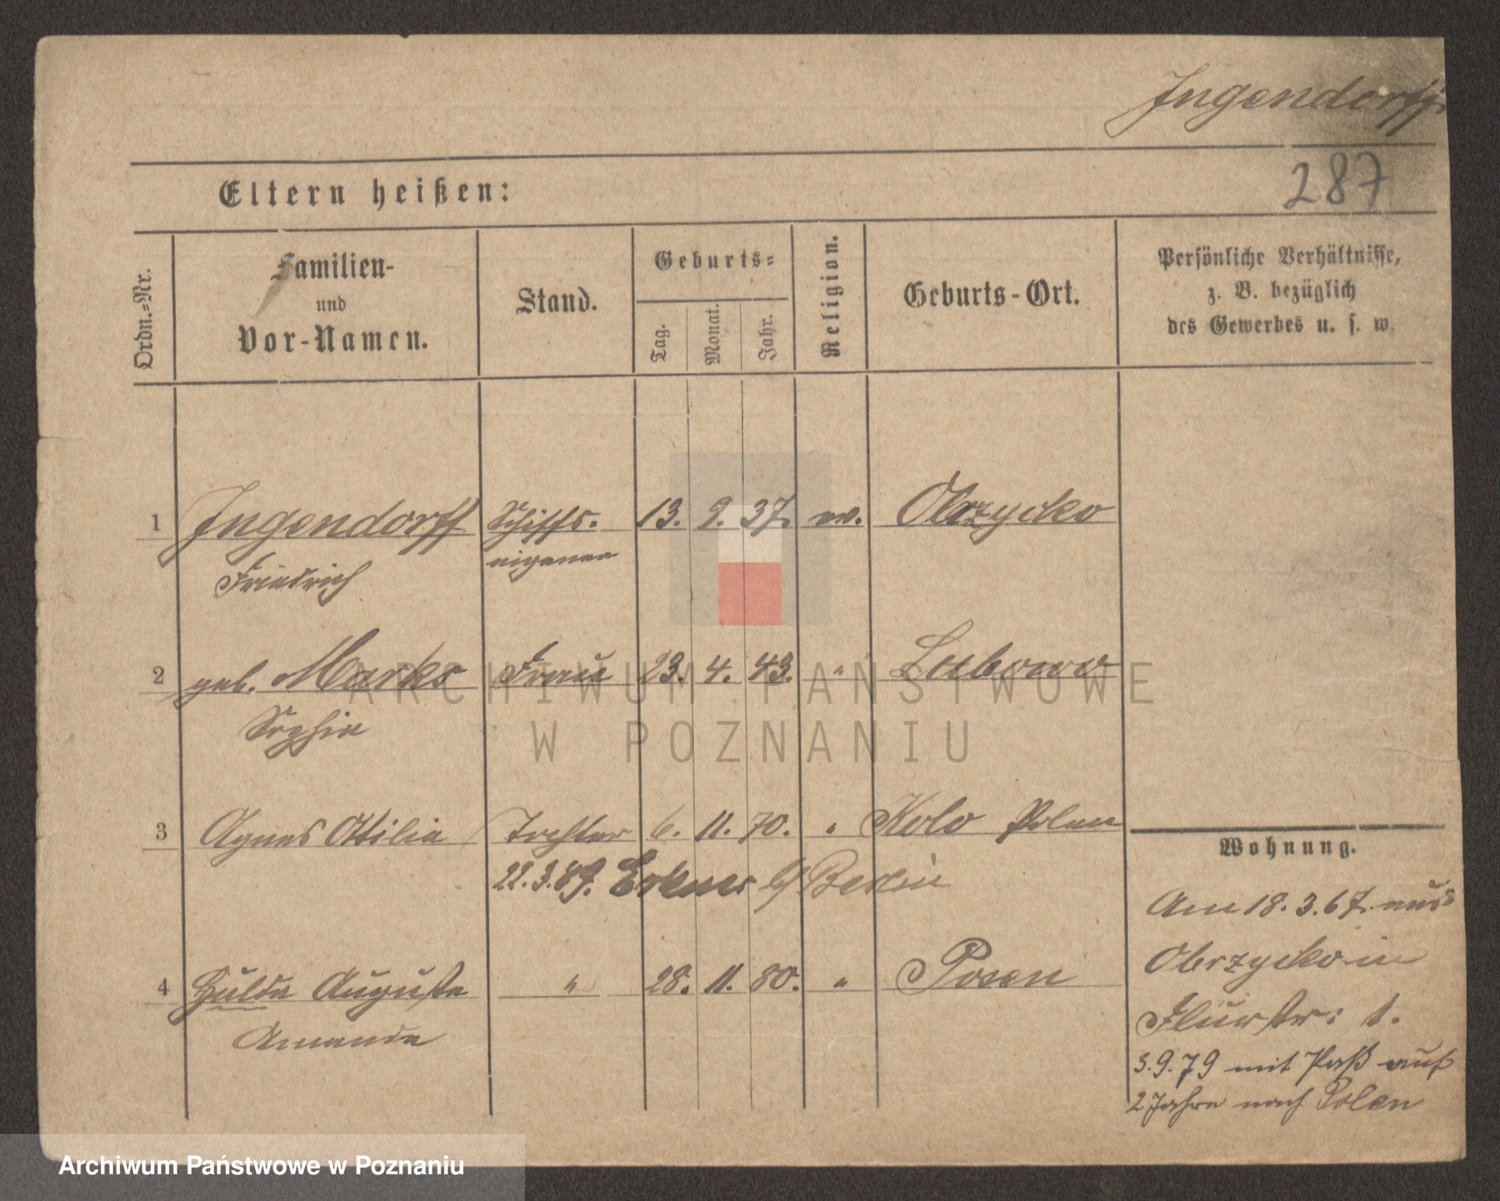 Ingendorff
287
Eltern heißen:
Ordn.-Nr.
Familien-
und
Vor-Namen.
Stand.
Geburts-
Tag.
Monat.
Jahr.
Religion.
Geburts-Ort.
Persönliche Verhältnisse,
z. B. bezüglich
des Gewerbes u. s. w.
1 Ingendorff Schiffs- 13. 9. 37. ev. Obrzycko
Friedrich eigener
2 geb. Marks Frau 23. 4. 43. " Lubowo
Sophie
3 Agnes Ottilie Tochter 6. 11. 70. " Kolo Polen
22.3.89. Erkner b/Berlin
4 Hulda Auguste " 28. 11. 80. " Posen
Amanda
Wohnung.
Am 18.3.67. aus
Obrzycko in
Flurstr: 1.
3.9.79 mit Paß auf
2 Jahre nach Polen
ARCHIWUM PAŃSTWOWE
W POZNANIU
Archiwum Państwowe w Poznaniu